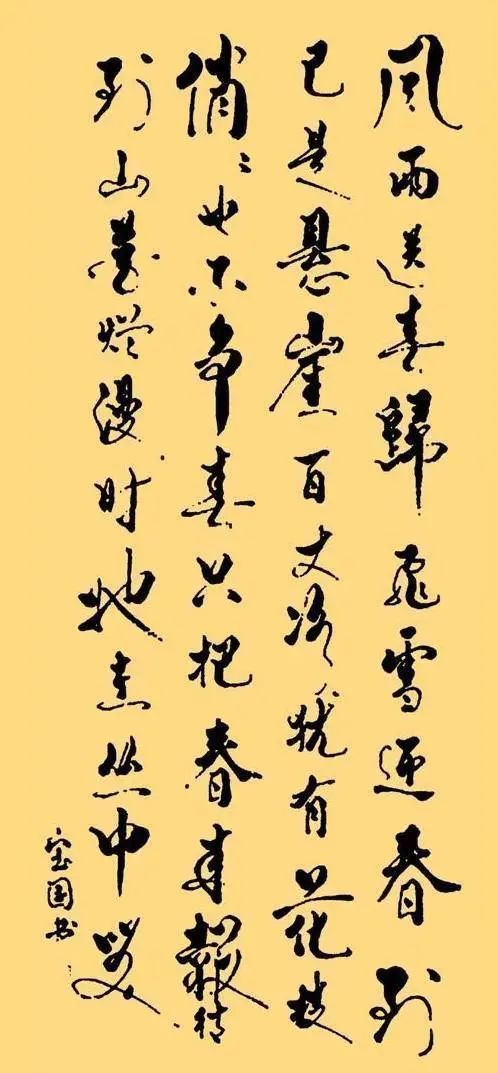 风雨送春歸飞雪迎春到
已是悬崖百丈冰犹有花枝
俏〻也不争春只把春来報待
到山花烂漫时她在丛中笑
宝国书